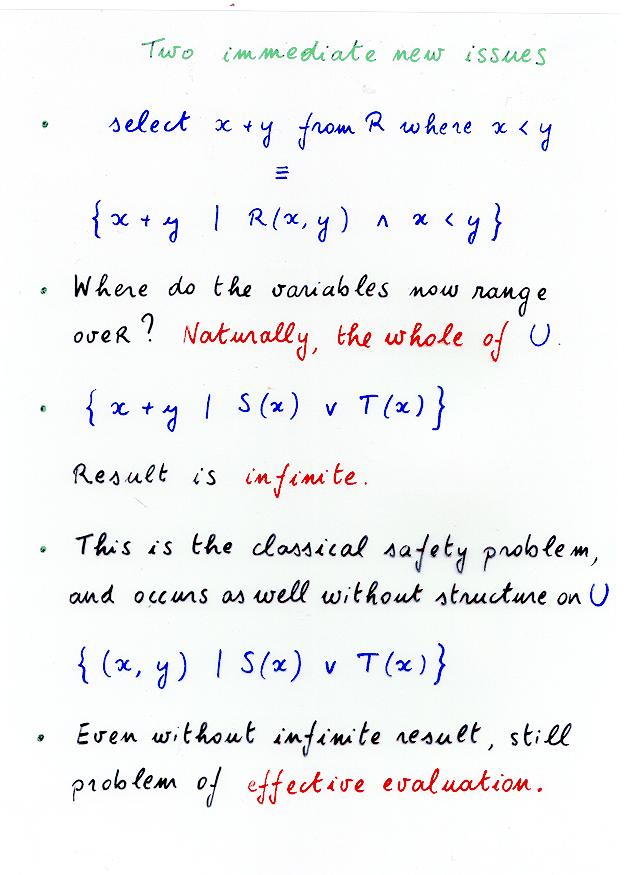 Two immediate new issues
• select x + y from R where x < y
≡
{ x + y | R(x, y) ∧ x < y }
• Where do the variables now range
over? Naturally, the whole of U.
• { x + y | S(x) ∨ T(x) }
Result is infinite.
• This is the classical safety problem,
and occurs as well without structure on U
{ (x, y) | S(x) ∨ T(x) }
• Even without infinite result, still
problem of effective evaluation.